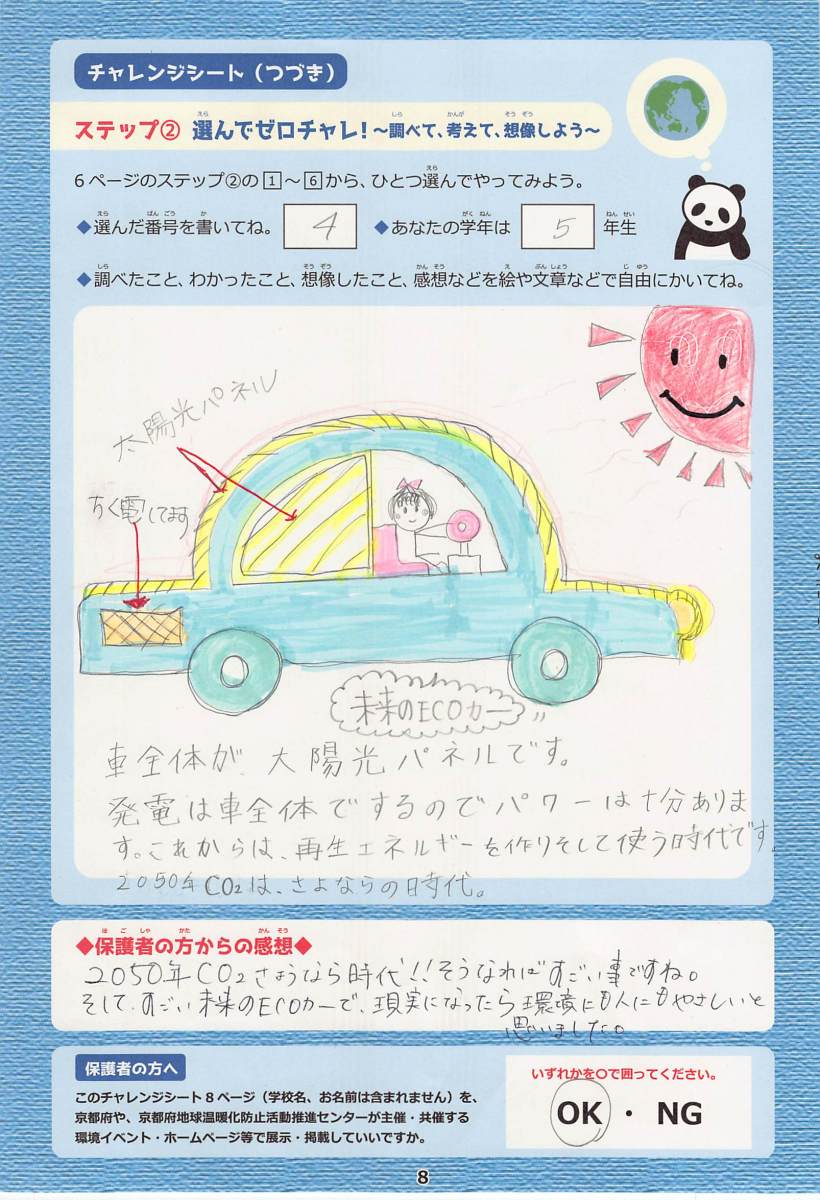 チャレンジシート（つづき）
ステップ② 選んでゼロチャレ！～調べて、考えて、想像しよう～
6ページのステップ②の1～6から、ひとつ選んでやってみよう。
◆選んだ番号を書いてね。 4 ◆あなたの学年は 5 年生
◆調べたこと、わかったこと、想像したこと、感想などを絵や文章などで自由にかいてね。
太陽光パネル
ちく電してます
未来のECOカー
車全体が、大陽光パネルです。
発電は車全体でするのでパワーは十分ありま
す。これからは、再生エネルギーを作りそして使う時代です。
2050年CO2は、さよならの時代。
◆保護者の方からの感想◆
2050年CO2さようなら時代!!そうなればすごい事ですね。
そして、すごい未来のECOカーで、現実になったら環境にも人にもやさしいと
思いました。
保護者の方へ
このチャレンジシート8ページ（学校名、お名前は含まれません）を、
京都府や、京都府地球温暖化防止活動推進センターが主催・共催する
環境イベント・ホームページ等で展示・掲載していいですか。
いずれかを○で囲ってください。
OK ・ NG
8